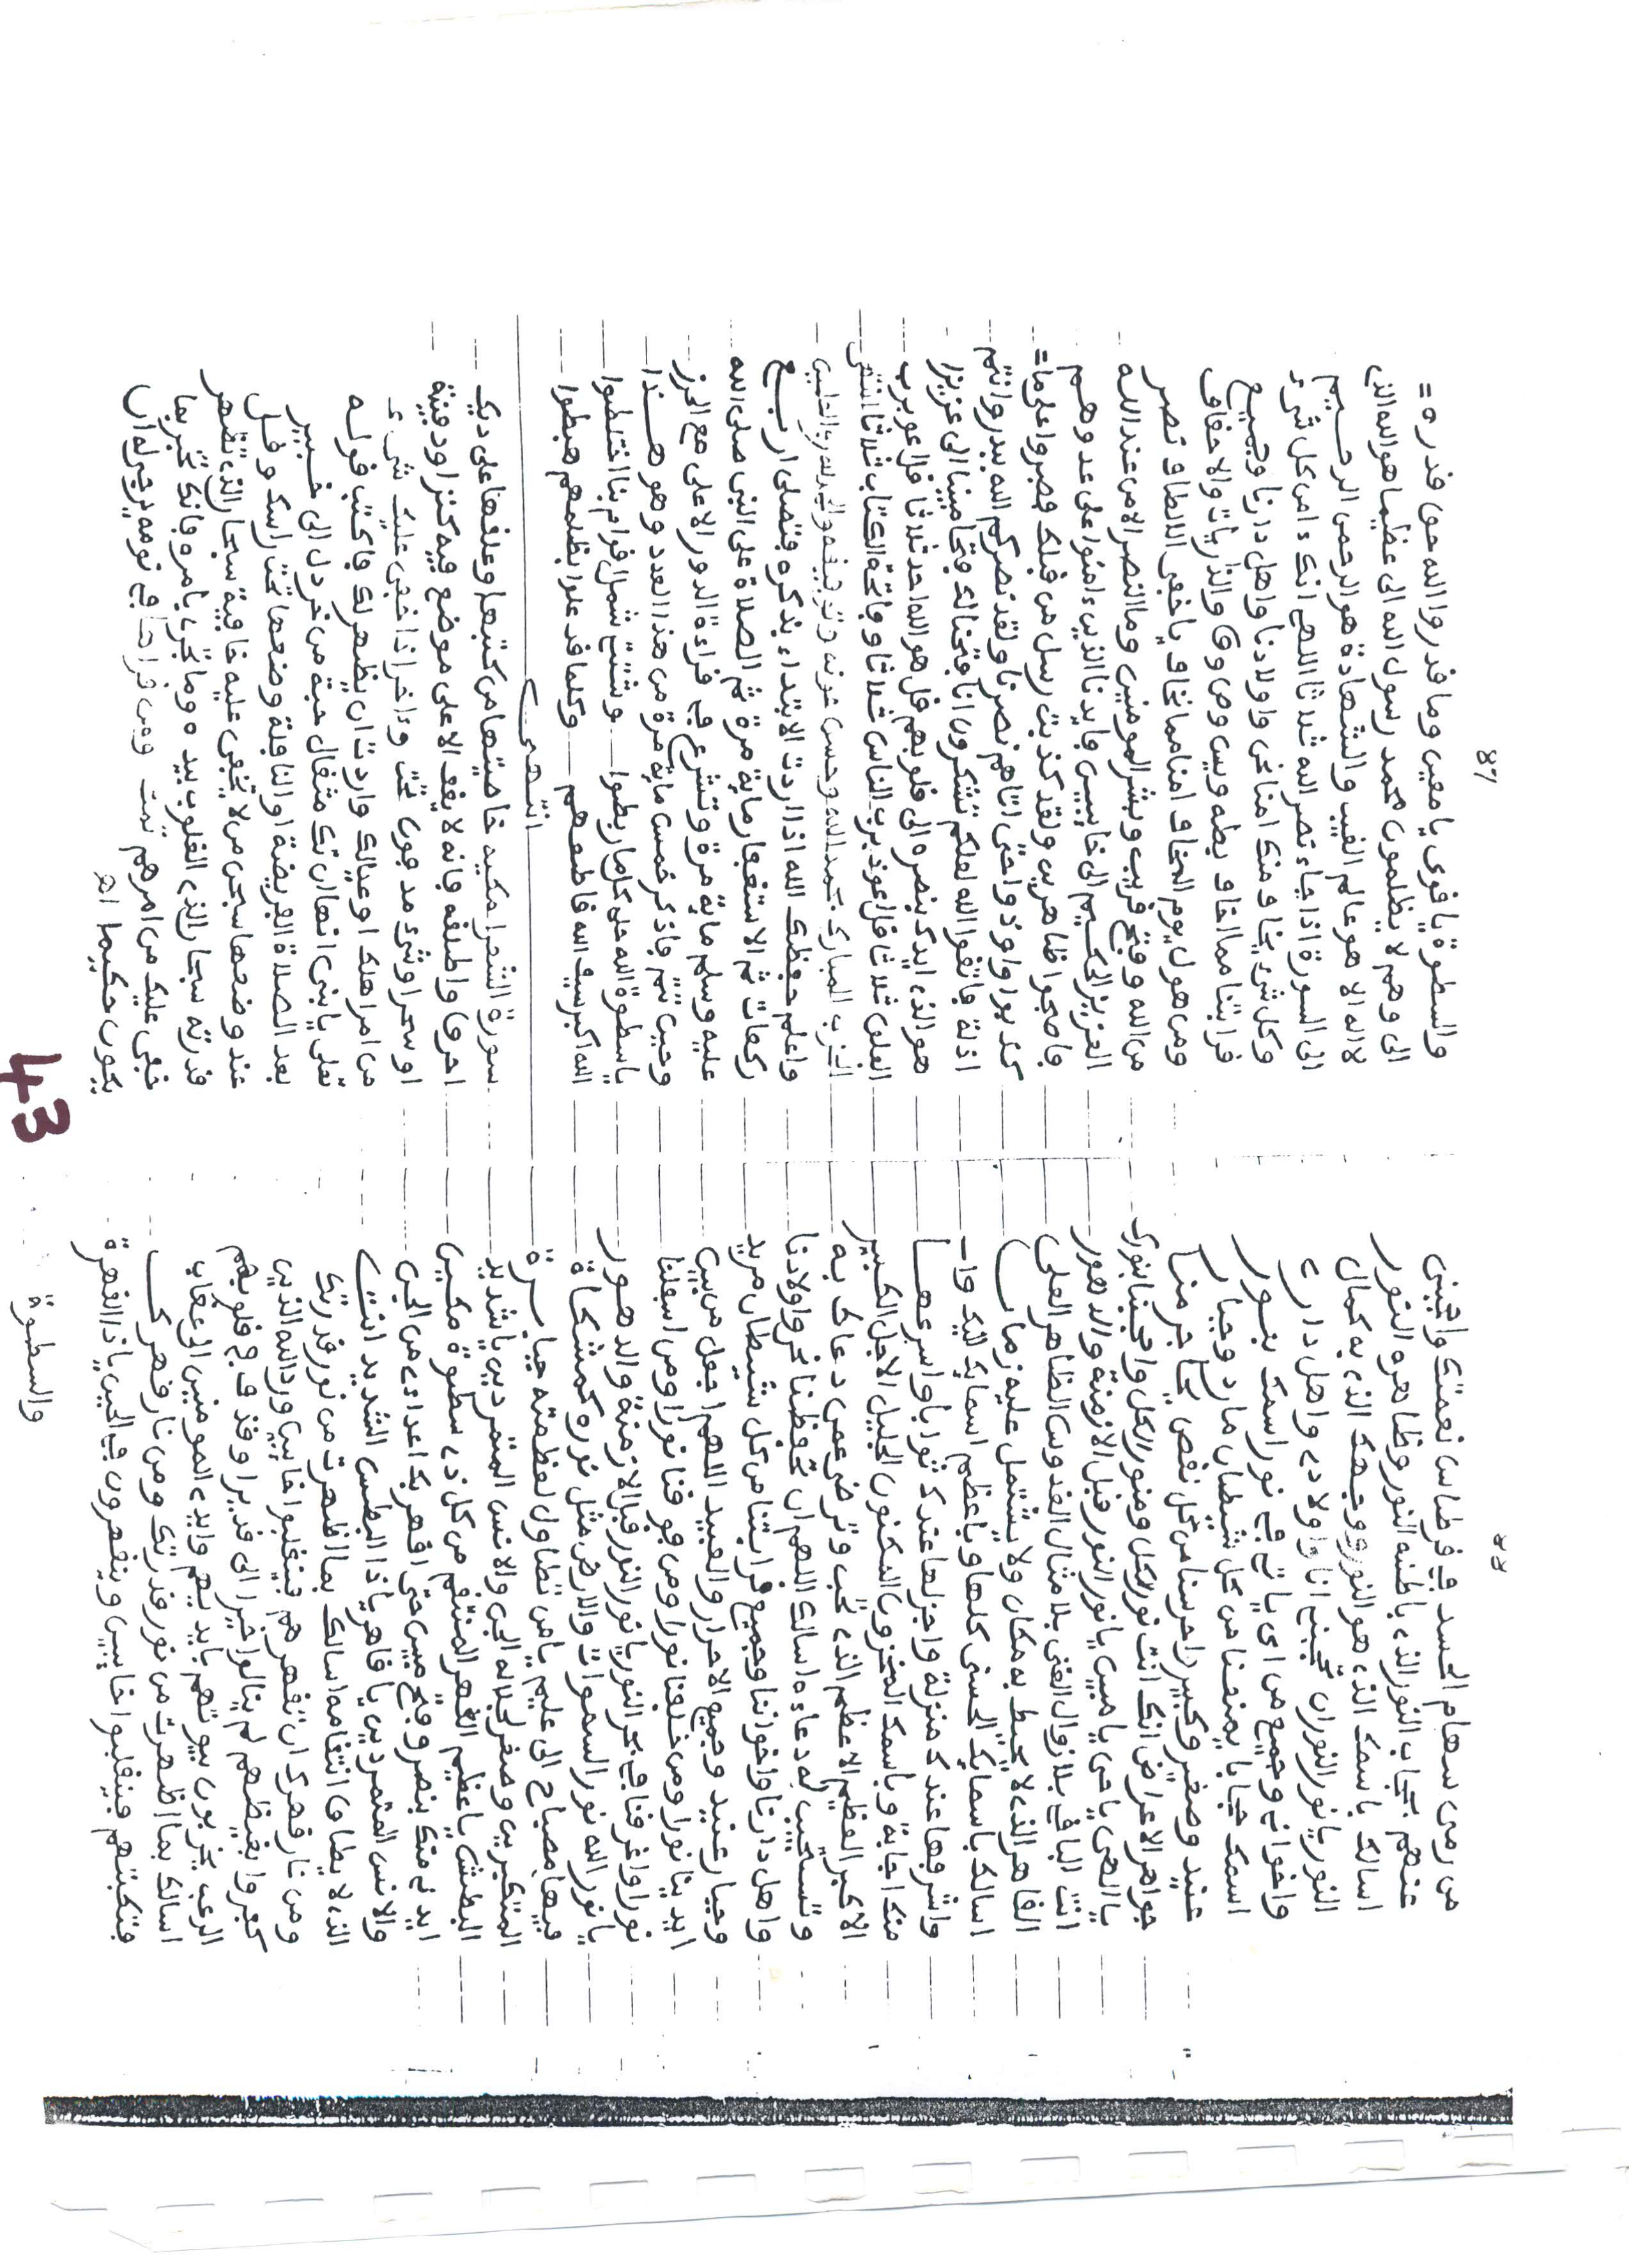 من رمى سهام الحسد في قرطاس نعمتك واحجبنى
عنهم بحجاب النور الذى باطنه النور وظاهره النور
اسالك باسمك الذى هو النور ووجهك الذى به كمال
النور يا نور النور ان تحجبنى انا واولادى واهل دارى
واخوانى وجميع من اى ياتى فى نور اسمك بنور
اسمك حجابا يمنعنا من كل شيطان مارد وجبار
عنيد وصغير وكبير واحرسنا من كل نقص يمازجر منا
جواهر الاعراض انك انت نور الكل ومنور الكل واحجبنا بنورك
يا الهى يا حى يا مبين يا نور النور قبل الازمنة والدهور
انت الباقى بلا زوال الغنى بلا مثال القدوس الظاهر العلى
القاهر الذى لا يحيط به مكان ولا يشتمل عليه زمان
اسالك باسمايك الحسنى كلها وباعظم اسمايك اليك وا
واشرفها عندك منزلة واجزلها عندك ثوابا واسرعها
منك اجابة وباسمك المخزون المكنون الجليل الاجل الكبير
الاكبر العظيم الاعظم الذى تحب وترضى عمن دعاك به
وتستجيب له دعاءه اسالك اللهم ان تحفظنا نحن واولادنا
واهل دارنا واخواننا وجميع قرابتنا من كل شيطان مريد
وجبار عنيد وجميع الاحرار والعبيد اللهم اجعل من بين
ايدينا نورا ومن خلفنا نورا ومن فوقنا نورا ومن اسفلنا
نورا واغرقنا فى بحر النور يا نور النور قبل الازمنة والدهور
يا نور الله نور السموات والارض مثل نوره كمشكاة
فيها مصباح الى عليم يا من تطاول لعظمته جبابرة
المتكبرين وصغر لجلاله الجن والانس المتمردين يا شديد
البطش يا عظيم القهر المنتقم من كل ذى سطوة مكين
ايدنى منك بنصر وفتح مبين حتى اقهر بك اعداءى من الجن
والانس المتمردين يا قاهر يا ذا البطش الشديد انت
الذى لا يطاق انتقامه اسالك بما اظهرت من نور قدرتك
ومن نار قهرك ان تقهرهم فينقلبوا خايبين ورد الله الذين
كفروا بغيظهم لم ينالوا خيرا الى قديرا وقذف فى قلوبهم
الرعب يخربون بيوتهم بايديهم وايدى المومنين الى عقاب
اسالك بما اظهرت من نور قدرتك ومن نار قهرك
فتكبتهم فينقلبوا خايبين وينقهرون فى الحين يا ذا القهرة
والسطوة
87
والسطوة يا قوى يا معين وما قدروا الله حق قدره =
الى وهم لا يظلمون محمد رسول الله الى عظيما هو الله الذى
لا اله الا هو عالم الغيب والشهادة هو الرحمن الرحيم
الى السورة اذا جاء نصر الله ثلاثا اللهم انك ءامن كل شىء
وكل شىء يخاف منك امنا نحن واولادنا واهل دارنا وجميع
قرابتنا مما نخاف بطه ويس وص وق والذاريات والاحقاف
ومن هول يوم المخاف امنا مما نخاف يا خفى الالطاف نصر
من الله وفتح قريب وبشر المومنين وما النصر الا من عند الله
العزيز الحكيم الى خايبين فايدنا الذين ءامنوا على عدوهم
فاصبحوا ظاهرين ولقد كذبت رسل من قبلك فصبروا على ما =
كذبوا واوذوا حتى اتاهم نصرنا ولقد نصركم الله ببدر وانتم
اذلة فاتقوا الله لعلكم تشكرون انا فتحنا لك فتحا مبينا الى عزيزا
هو الذى ايدك بنصره الى قلوبهم قل هو الله احد ثلاثا قل اعوذ برب
الفلق ثلاثا قل اعوذ برب الناس ثلاثا وفاتحة الكتاب ثلاثا انتهى
الحزب المبارك بحمد الله وحسن عونه وتوفيقه والحمد لله رب العلمين
واعلم حفظك الله اذا اردت الابتداء بذكره فتصلى اربع
ركعات ثم الاستغفار ماية مرة ثم الصلاة على النبى صلى الله
عليه وسلم ماية مرة وتشرع فى قراءة الدور الاعلى مع الحزز
وحين تتم فاذكر خمس ماية مرة من هذا العدد وهو هذا
يا سطوة الله حلى كلما ربطوا ـــ وشتتى شمل اقوام بنا اختلطوا
الله اكبر سيف الله قاطعهم ـــ وكلما قد علوا بظلمهم هبطوا
انتهى
سورة الشعرا مكية خاصيتها من كتبها وعلقها على ديك
احرق واطلقه فانه لا يقف الا على موضع فيه كنز او دفينة
او سحر او شىء مدفون تحت وءاخر اذا خفى عليك شىء
من امر اهلك او عيالك واردت ان يظهر لك فاكتب قوله
تعلى يا بنى انها ان تك مثقال حبة من خردل الى خبير
بعد الصلاة الفريضة او النافلة وضعها تحت راسك وقل
عند وضعها سبحن من لا تخفى عليه خافية سبحن الذى تظهر
قدرته سبحان الذى القلوب بيده وما تجرى بامره فانك تخبر بما
خفى عليك من امرهم تمت ومن قراها فى نومه يرجى له ان
يكون حكيما اهـ
43